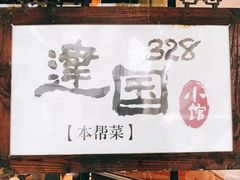 328
建国
小馆
【本帮菜】